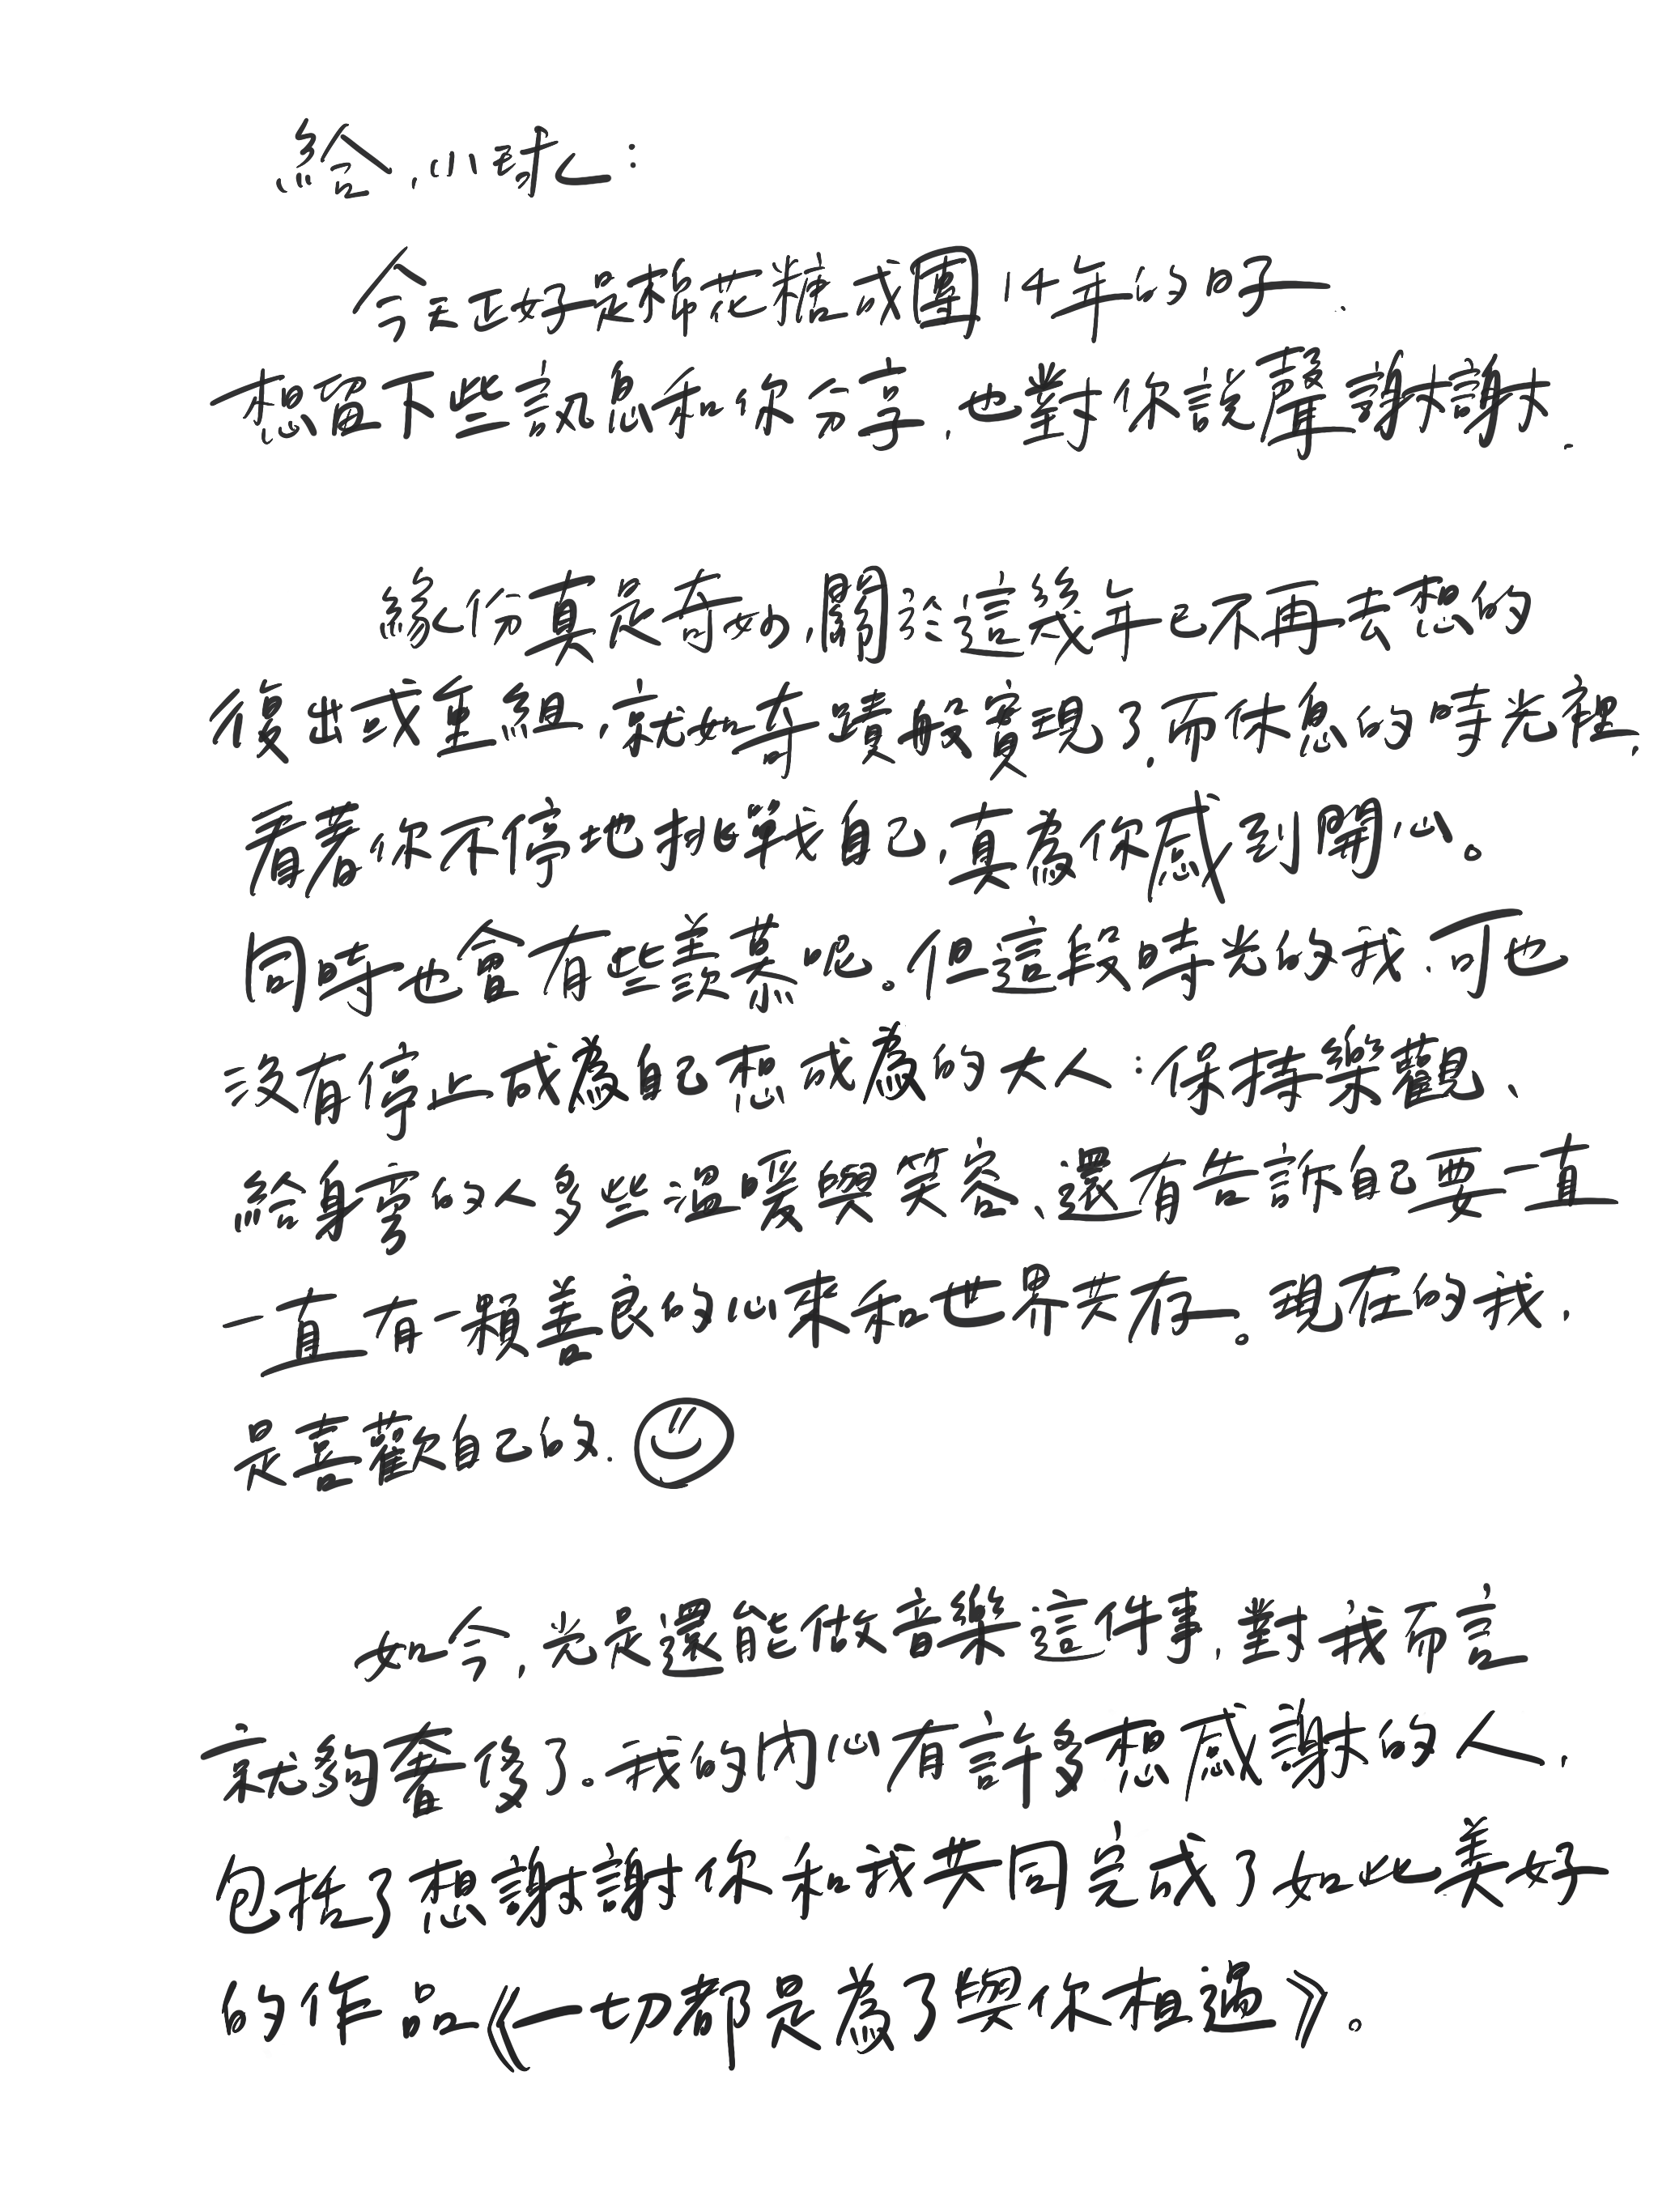 給，小球ㄥ：
今天正好是棉花糖成團14年的日子.
想留下些訊息和你分享，也對你說聲謝謝.
緣份真是奇妙，關於這幾年已不再去想的
復出或重組，就如奇蹟般實現了，而休息的時光裡，
看著你不停地挑戰自己，真為你感到開心。
同時也會有些羨慕呢。但這段時光的我，可也
沒有停止成為自己想成為的大人：保持樂觀、
給身旁的人多些溫暖與笑容、還有告訴自己要一直
一直有一顆善良的心來和世界共存。現在的我，
是喜歡自己的.
如今，光是還能做音樂這件事，對我而言
就夠奢侈了。我的內心有許多想感謝的人，
包括了想謝謝你和我共同完成了如此美好
的作品《一切都是為了與你相遇》。